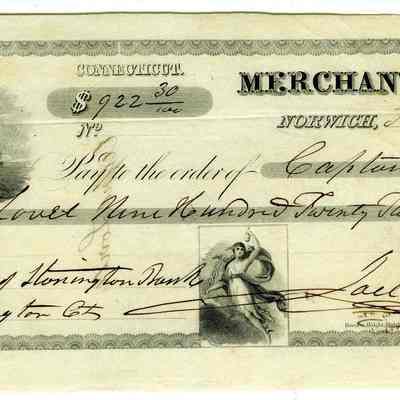 CONNECTICUT.
MERCHAN
$ 922 30/100
No
NORWICH,
Pay to the order of Capt
Nine Hundred Twenty
Stonington Bank
ton Ct